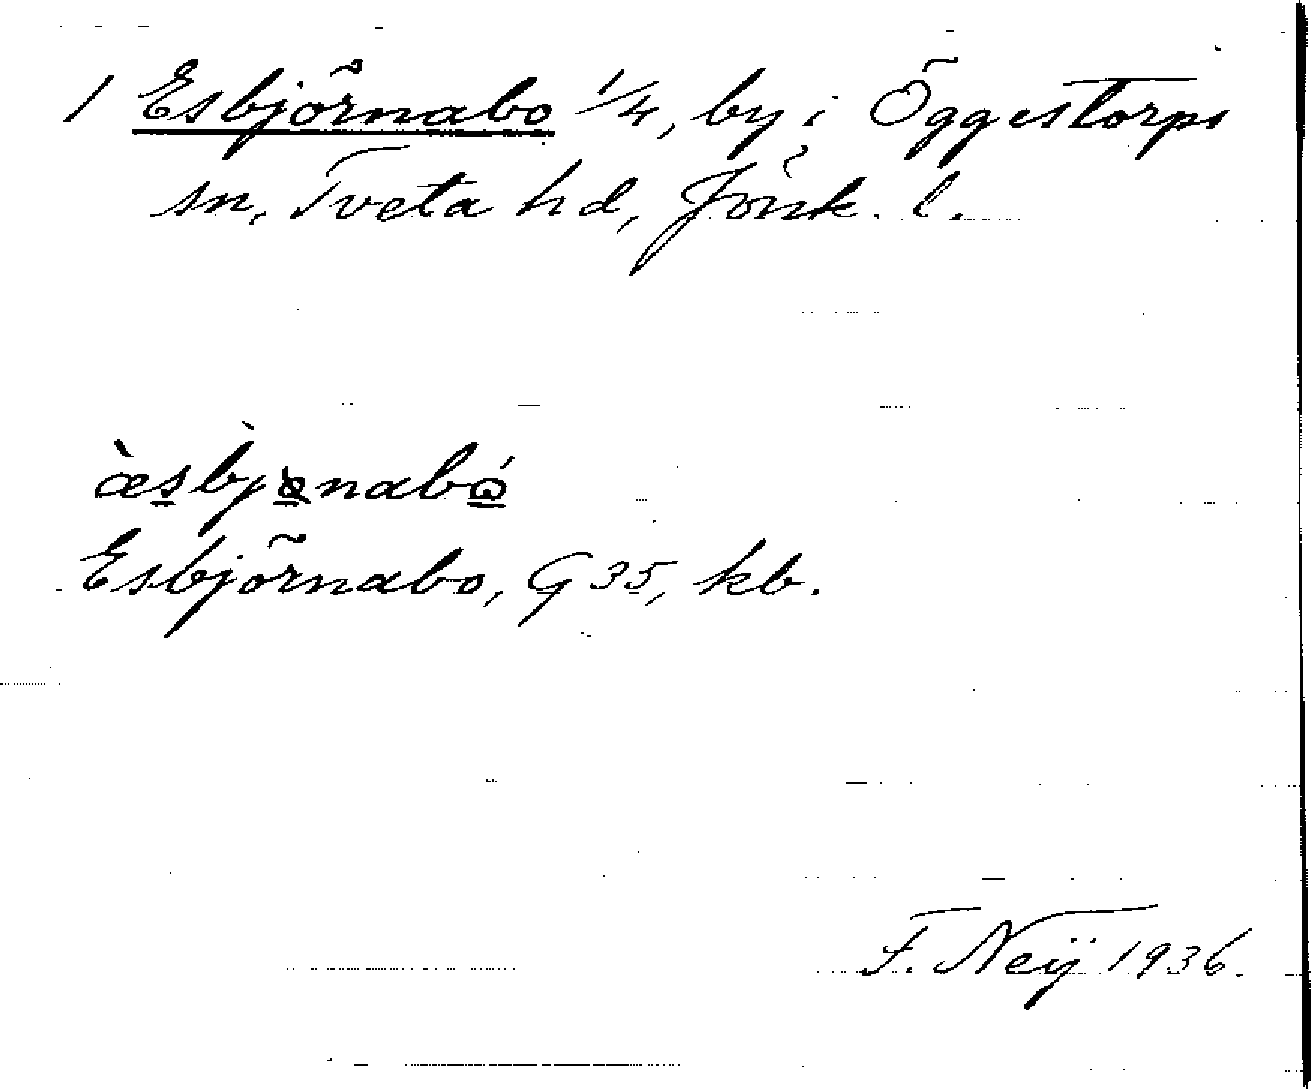 1 Esbjörnabo 1/4, by i Öggestorps
sn, Tveta hd, Jönk. l.
æ̀sbjönabó
Esbjörnabo, G 35, kb.
F. Neij 1936.